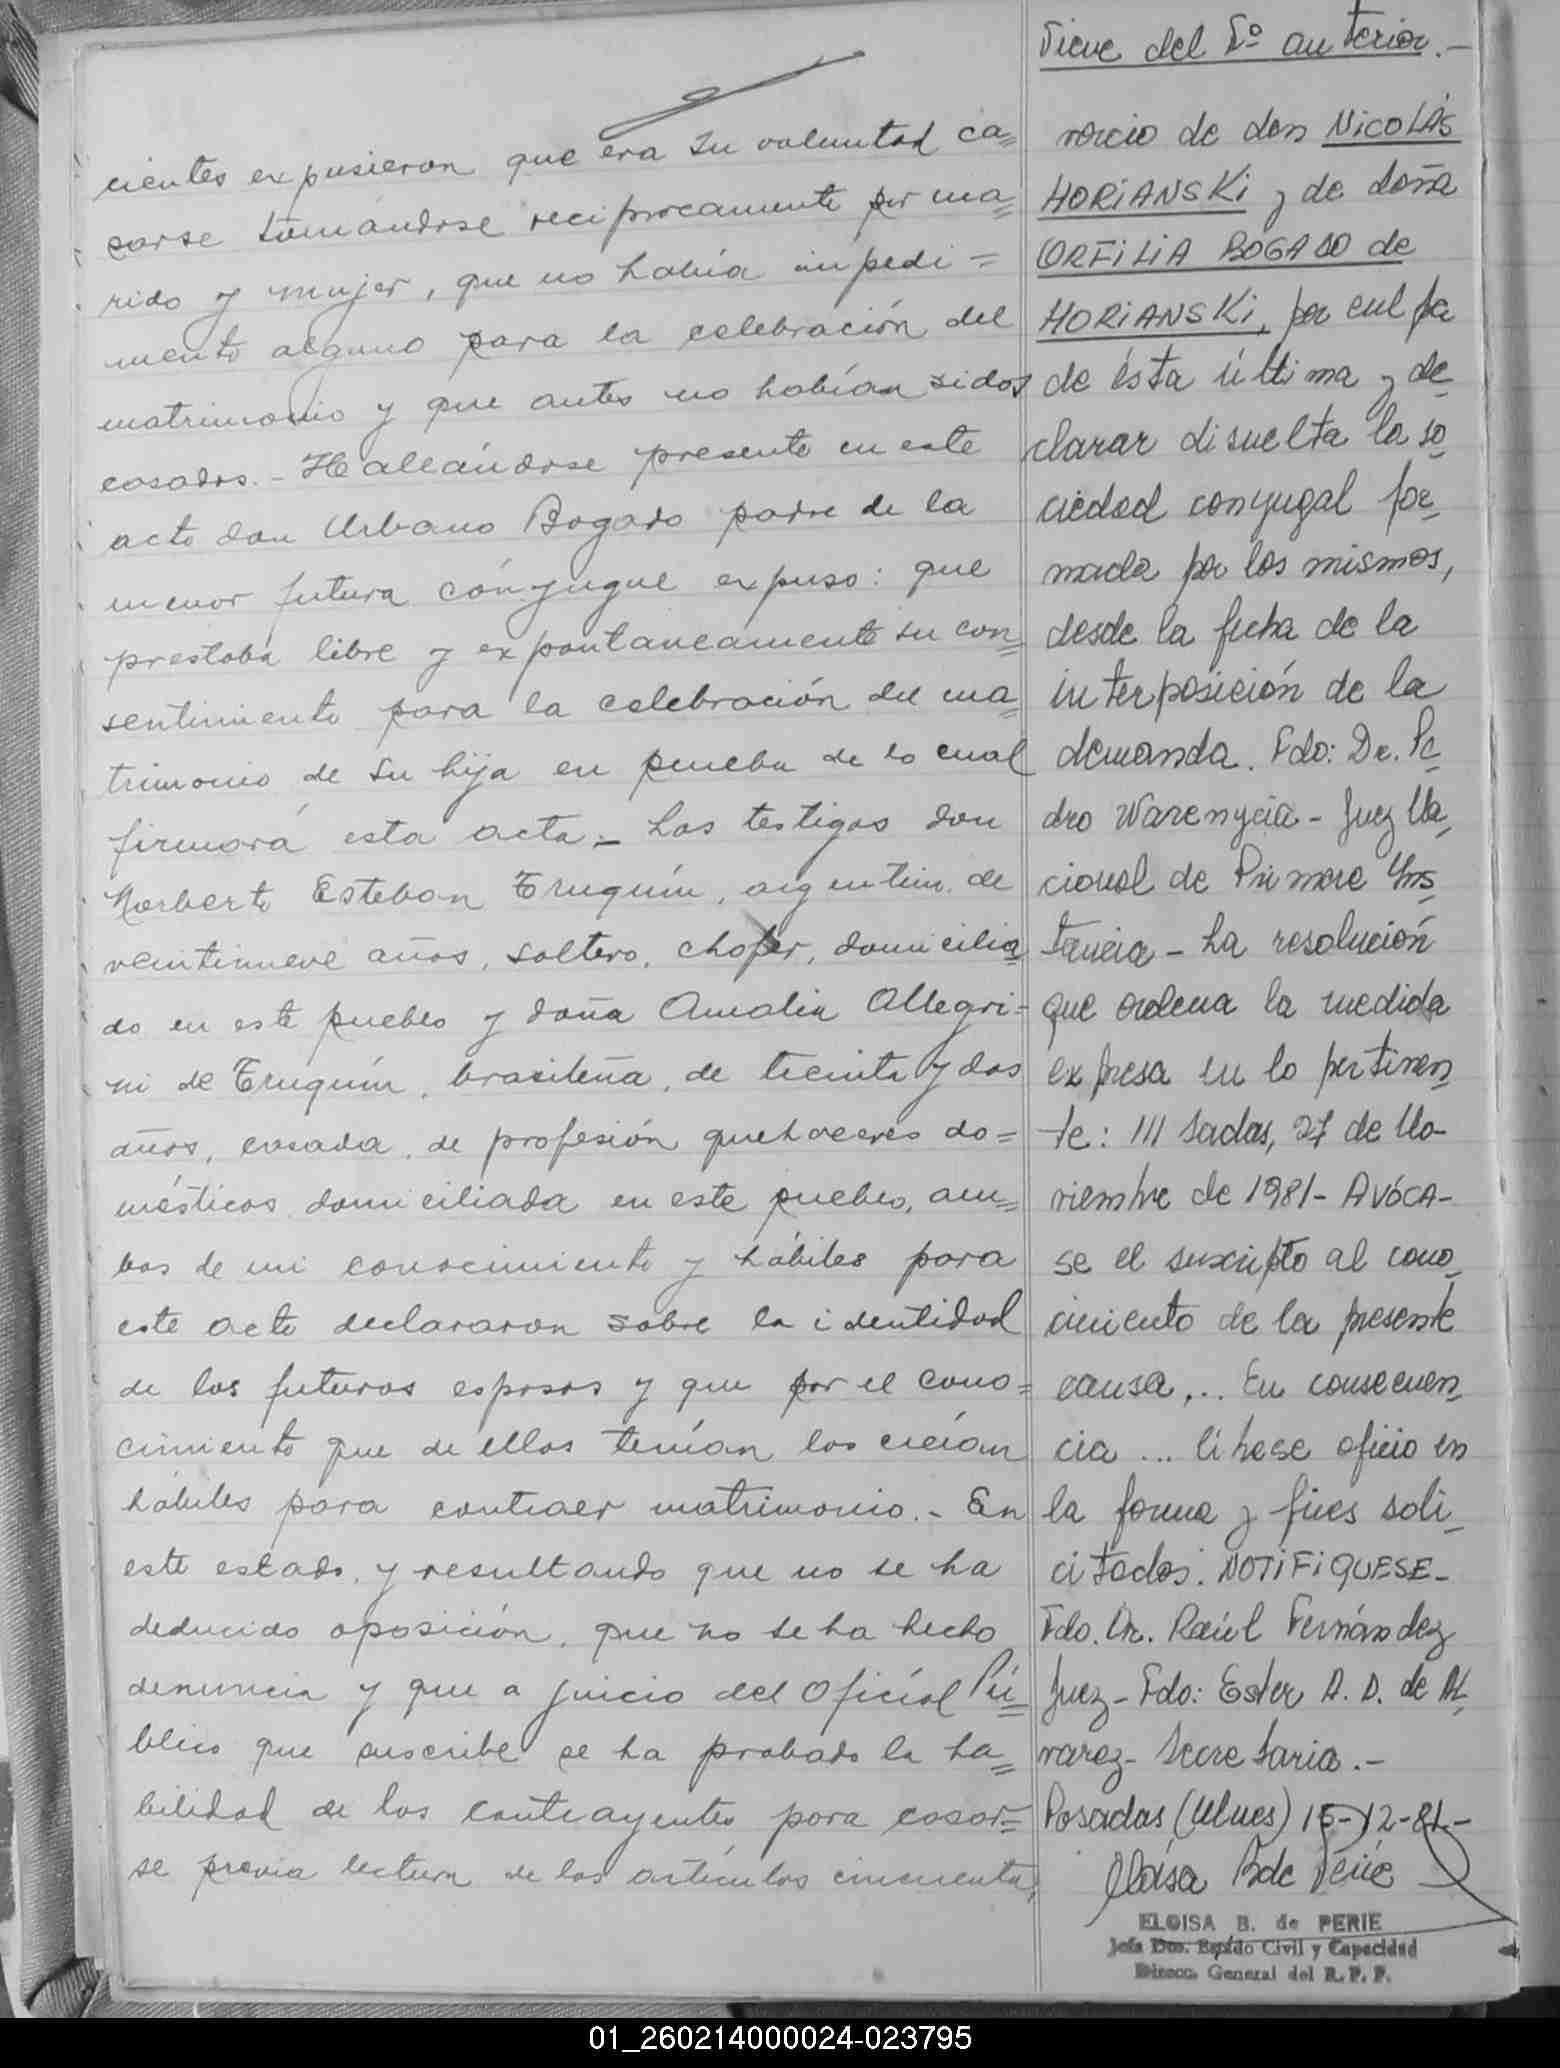 cientes expusieron que era su voluntad ca=
sarse tomándose reciprocamente por ma=
rido y mujer, que no había inpedi=
mento alguno para la celebración del
matrimonio y que antes no habían sidos
casados.- Hallándose presente en este
acto don Urbano Bogado padre de la
menor futura cónyugue expuso: que
prestaba libre y expontaneamente su con=
sentimiento para la celebración del ma=
trimonio de su hija en prueba de lo cual
firmará esta acta.- Los testigos don
Norberto Esteban Truquín, argentino de
veintinueve años, soltero, chofer, domicilia=
do en este pueblo y doña Amalia Allegri=
ni de Truquín, brasileña, de treinta y dos
años, casada, de profesión quehaceres do=
mésticos domiciliada en este pueblo, am=
bos de mi conocimiento y hábiles para
este acto declararon sobre la identidad
de los futuros esposos y que por el cono=
cimiento que de ellos tenían los creían
hábiles para contraer matrimonio.- En
este estado, y resultando que no se ha
deducido oposición, que no se ha hecho
denuncia y que a juicio del Oficial Pú=
blico que suscribe se ha probado la ha=
bilidad de los contrayentes para casar=
se previa lectura de los artículos cincuenta,
Viene del Fº anterior.-
vorcio de don NICOLÁS
HORIANSKI y de doña
ORFILIA BOGADO de
HORIANSKI, por culpa
de ésta última y de-
clarar disuelta la so-
ciedad conyugal for-
mada por los mismos,
desde la fecha de la
interposición de la
demanda. Fdo: Dr. Pe-
dro Warenycia - Juez Na-
cional de Primera Ins-
tancia - La resolución
que ordena la medida
expresa en lo pertinen-
te: /// sadas, 27 de No-
viembre de 1981- AVÓCA-
se el suscripto al cono-
cimiento de la presente
causa,... En consecuen-
cia ... líbrese oficio en
la forma y fines soli-
citados. NOTIFIQUESE-
Fdo. Dr. Raúl Fernández
Juez - Fdo: Ester A. D. de Al-
varez - Secretaria.-
Posadas (Mnes) 15-12-81.-
Eloísa B de Perié
ELOISA B. de PERIE
Jefa Dto. Estado Civil y Capacidad
Direcc. General del R. P. P.
01_260214000024-023795